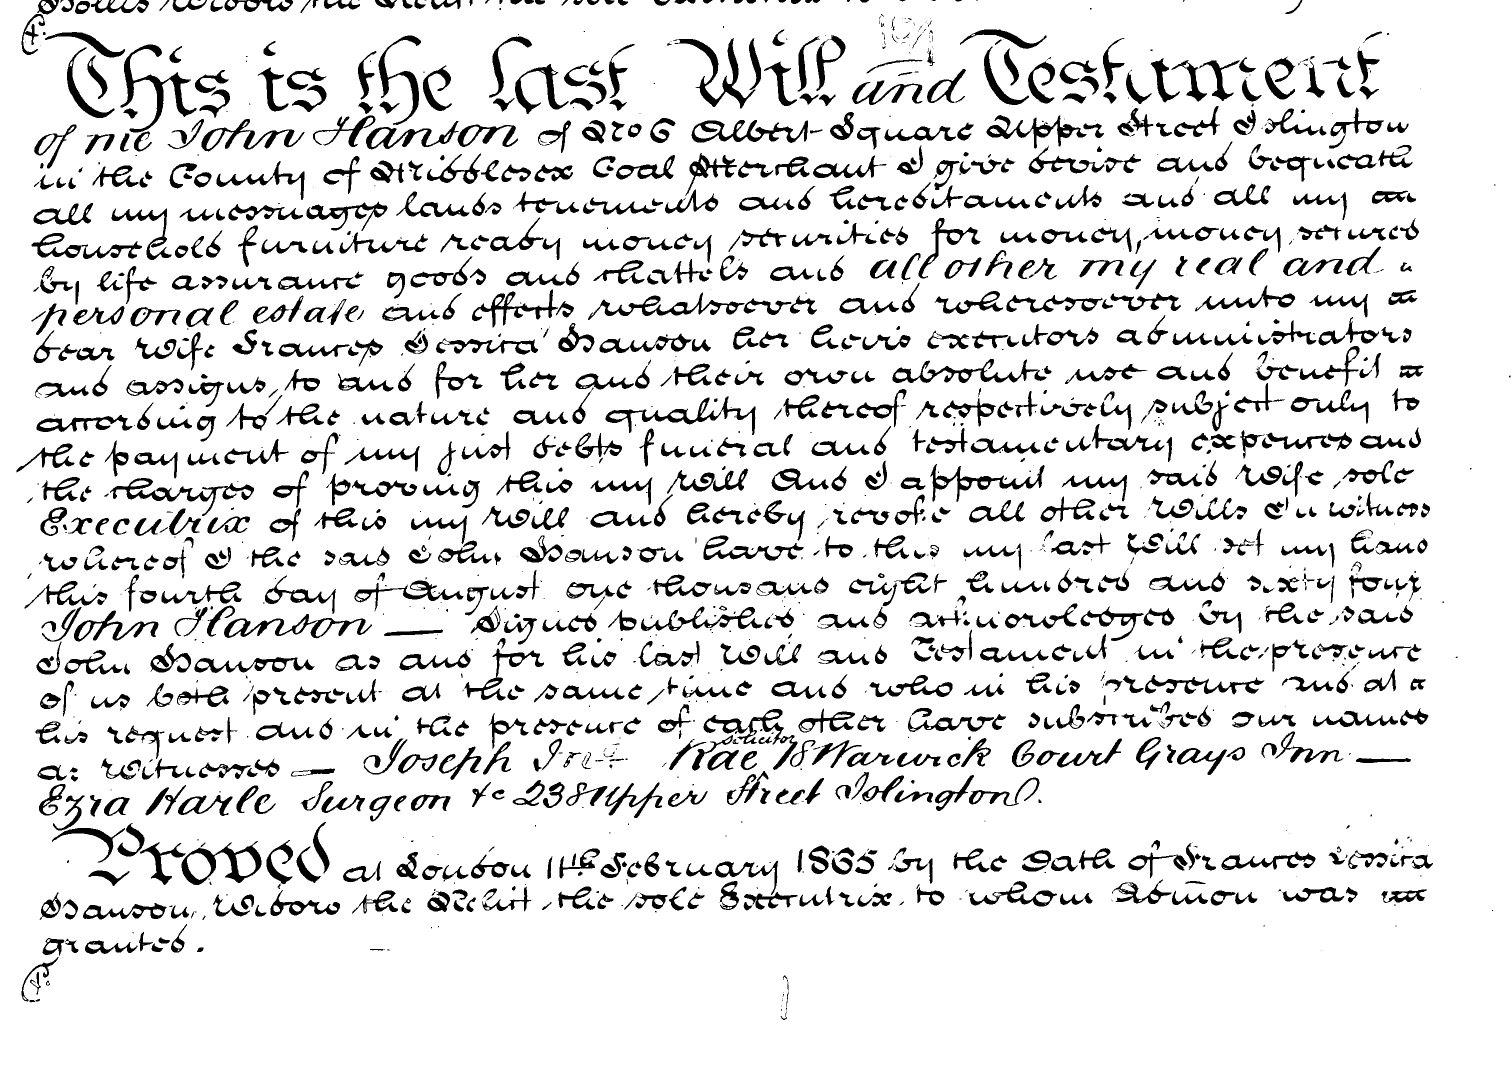 This is the last Will and Testament
of me John Hanson of No 6 Albert Square Upper Street Islington
in the County of Middlesex Coal Merchant I give devise and bequeath
all my messuages lands tenements and hereditaments and all my
household furniture ready money securities for money, money secured
by life assurance goods and chattels and all other my real and
personal estate and effects whatsoever and wheresoever unto my
dear Wife Frances Jessica Hanson her heirs executors administrators
and assigns, to and for her and their own absolute use and benefit
according to the nature and quality thereof respectively subject only to
the payment of my just debts funeral and testamentary expences and
the charges of proving this my Will And I appoint my said Wife sole
Executrix of this my Will and hereby revoke all other Wills In witness
whereof I the said John Hanson have to this my last Will set my hand
this fourth day of August one thousand eight hundred and sixty four
John Hanson — Signed published and acknowledged by the said
John Hanson as and for his last Will and Testament in the presence
of us both present at the same time and who in his presence and at
his request and in the presence of each other have subscribed our names
as Witnesses — Joseph Rae Solicitor 18 Warwick Court Grays Inn —
Ezra Harle Surgeon &c 238 Upper Street Islington.
Proved at London 11th February 1865 by the Oath of Frances Jessica
Hanson, Widow the Relict the sole Executrix to whom Admon was
granted.